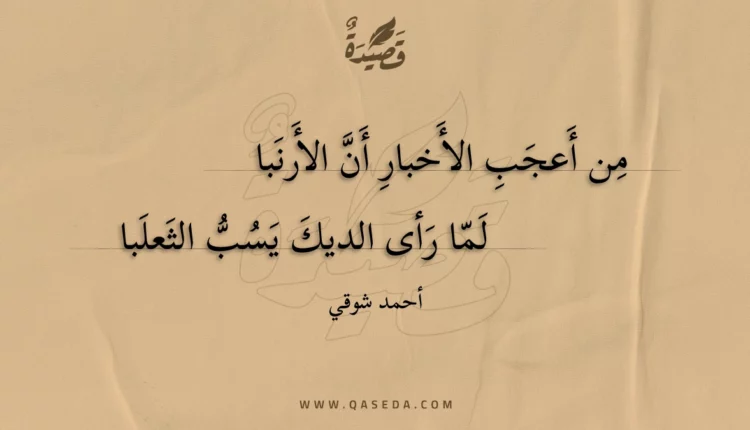 قَصِيْدَةٌ
مِن أَعجَبِ الأَخبارِ أَنَّ الأَرنَبا
لَمّا رَأى الديكَ يَسُبُّ الثَعلَبا
أحمد شوقي
WWW.QASEDA.COM